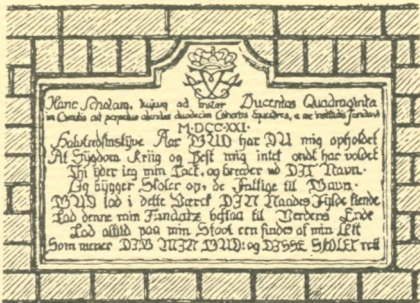 Hanc Scholam, hujus ad instar Ducentas Quadraginta
in Cimbria ad perpetuo alendas duodecim Cohortes Equestres, e ære instituta fundavi
M·DCC·XXI·
Halvtredsinstyve Aar GUD har DU mig opholdet
At Sygdom Kriig og Pest mig intet ondt har voldet
Thi yder ieg min Tack, og breeder ud DIT Navn.
Og bygger Skoler op, de Fattige til Gavn.
GUD lad i dette Værck DIN Naades Fylde kiende
Lad denne min Fundatz bestaa til Verdens Ende
Lad altid paa min Stool een findes af min Ætt
Som mener DIG MIN GUD: og DISSE SKOLER rett